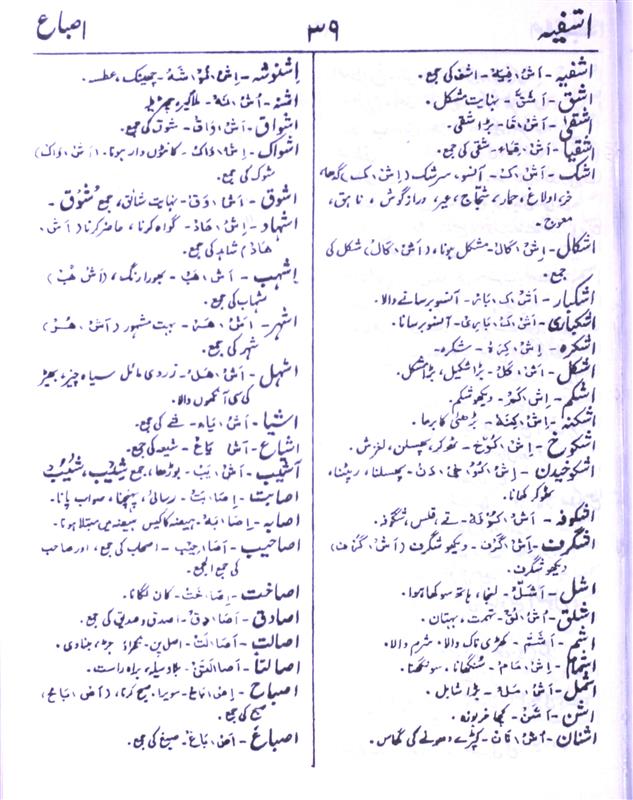 اشفیہ ۳۹ اصباغ
اشفیہ - اَشْ، فِیَہْ - اشف کی جمع۔
اشق - اَشَقّ - نہایت مشکل۔
اشقیٰ - اَشْ، قَا - بڑا شقی۔
اشقیا - اَشْ، قِیَاء - شقی کی جمع۔
اشک - اَشْ، کْ - آنسو، سرشک (اِشْ، کْ) گدھا،
خر، اولاغ، حمار، شحاج، عیر، دراز گوش، ناہق،
اشکال - اِشْ، کَالْ - مشکل ہونا، (اَشْ، کَالْ) شکل کی
جمع۔
اشکبار - اَشْ، کْ، بَارْ - آنسو برسانے والا۔
اشکباری - اَشْ، کْ، بَارِی - آنسو برسانا۔
اشکرہ - اِشْ، کَرَہْ - شکرہ۔
اشکل - اَشْ، کَلْ - بڑا شکیل، بڑا مشکل۔
اشکم - اِشْ، کَمْ - دیکھو شکم۔
اشکنہ - اِشْ، کِنَہْ - بڑھئی کا برما۔
اشکوخ - اِشْ، کُوْخْ - ٹھوکر، پھسلن، لغزش۔
اشکوخیدن - اِشْ، کُوْ، خِیْ، دَنْ - پھسلنا، رپٹنا،
ٹھوکر کھانا۔
اشکوفہ - اَشْ، کُوْفَہْ - قے، قلس، شگوفہ۔
اشگرف - اِشْ، گَرْف - دیکھو شگرف (اَشْ، گَرْف)
دیکھو شگرف۔
اشل - اَشَلّ - لنجا، ہاتھ سوکھا ہوا۔
اشلق - اَشْ، لَقْ - تہمت، بہتان۔
اشم - اَشَمّ - کھڑی ناک والا، شرم والا۔
اشمام - اِشْ، مَامْ - سُنگھانا، سونگھنا۔
اشمل - اَشْ، مَلْ - بڑا شامل۔
اشن - اَشَنْ - کچا خربوزہ۔
اشنان - اُشْ، نَانْ - کپڑے دھونے کی گھاس۔
اِشنوشہ - اِشْ، نُوْ، شَہْ - چھینک، عطسہ۔
اشواق - اَشْ، وَاقْ - شوق کی جمع۔
اشواک - اِشْ، وَاکْ - کانٹوں دار ہونا۔ (اَشْ، وَاکْ)
شوک کی جمع۔
اشوق - اَشْ، وَقْ - نہایت شائق، جمع شُوُق -
اشہاد - اِشْ، ھَادْ - گواہ کرنا، حاضر کرنا (اَشْ،
ھَادْ) شاہد کی جمع۔
اشہب - اَشْ، ھَبْ - بھورا رنگ، (اَشْ ھُبْ)
شہاب کی جمع۔
اشہر - اَشْ، ھَرْ - بہت مشہور (اَشْ، ھُرْ)
شہر کی جمع۔
اشہل - اَشْ، ھَلْ - زردی مائل سیاہ چیز، بھیڑ
کی سی آنکھوں والا۔
اشیا - اَشْ، یَاء - شے کی جمع۔
اشیاع - اَشْ یَاعْ - شیعہ کی جمع۔
اشیب - اَشْ، یَبْ - بوڑھا، جمع شِیْب، شُیُبْ
اصابت - اِصَا، بَتْ - رسائی، پہنچنا، صواب پانا۔
اصابہ - اِصَا، بَہْ - ہیضہ کا کیس، ہیضہ میں مبتلا ہونا۔
اصاحیب - اَصَا، حِیْب - اصحاب کی جمع، اور صاحب
کی جمع الجمع۔
اصاخت - اِصَا، خَتْ - کان لگانا۔
اصادق - اَصَا، دِقْ - اصدق و صدیق کی جمع۔
اصالت - اَصَا، لَتْ - اصل پن، نکھراؤ جڑ، بنیادی۔
اصالتاً - اَصَا، لَتَنْ - بلا وسیلہ، براہ راست۔
اصباح - اِصْ، بَاحْ - سویرا، صبح کرنا، (اَصْ، بَاحْ)
صبح کی جمع۔
اصباغ - اَصْ، بَاغْ - صبغ کی جمع۔